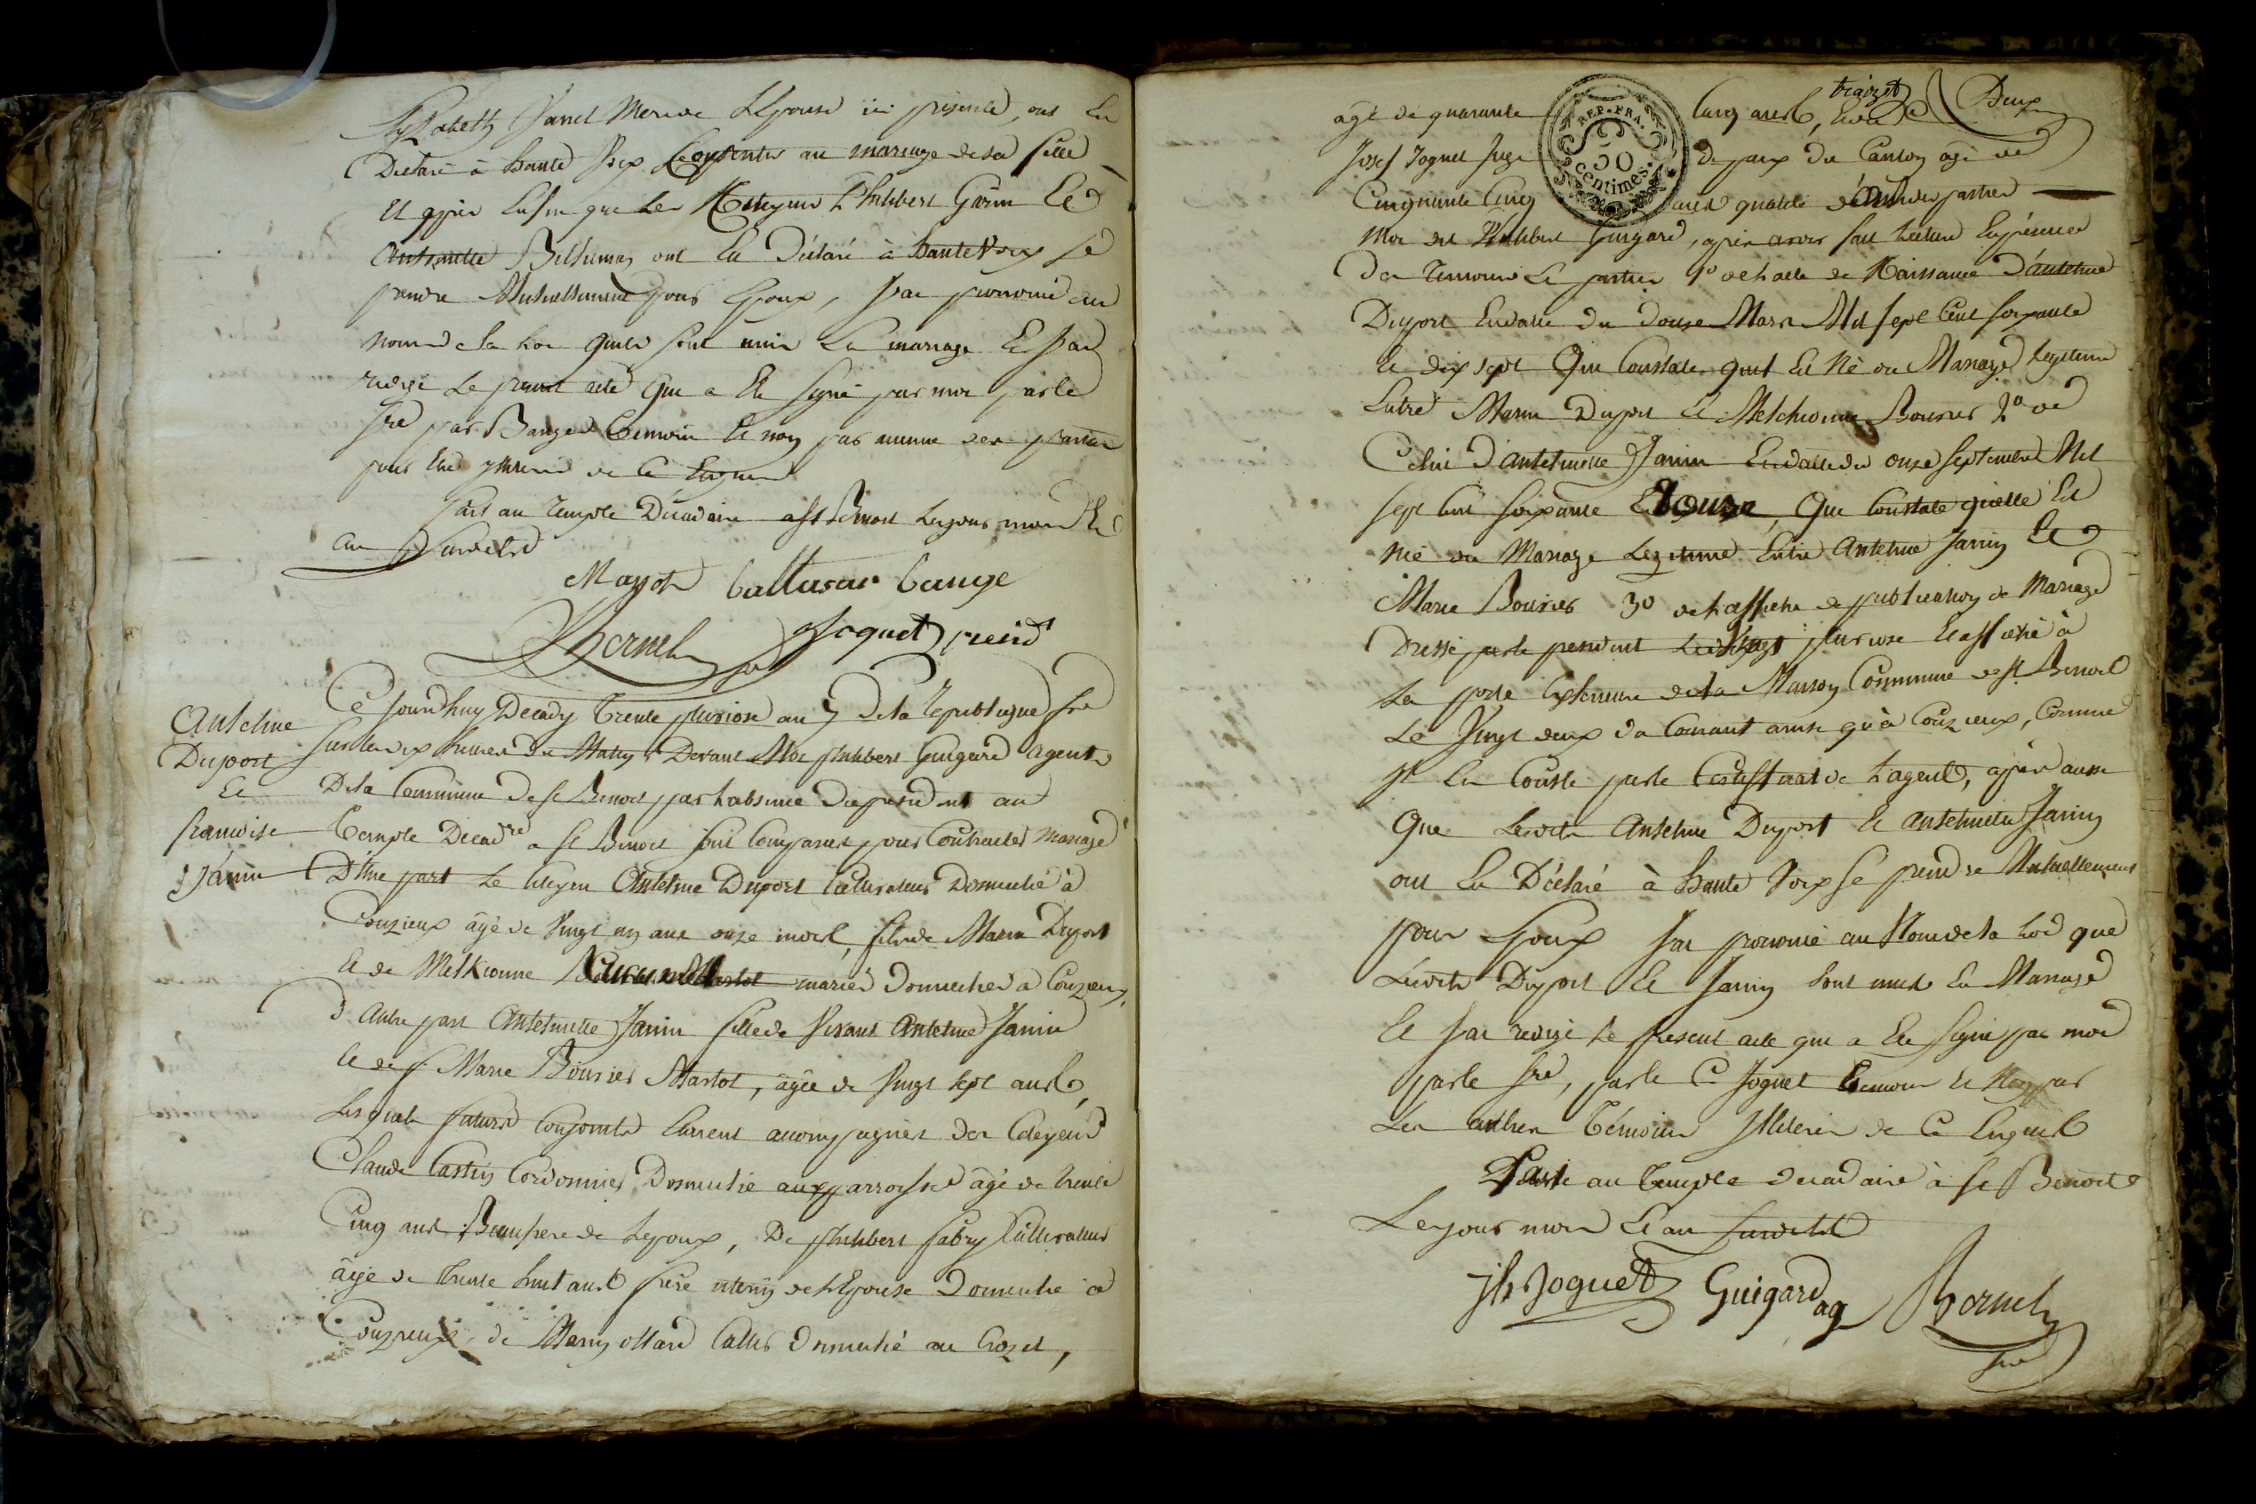 Elyzabeth Janet Mere de Lepouse ici presente, ont En
Declaré à haute Voix Consentir au mariage de sa fille
Et après Enfin que Les Citoyens Philibert Garin Et
Antoinette Billiemaz ont En Déclaré à haute Voix se
prendre Mutuellement pour Epoux, J'ai prononcé au
nom de la Loi quils sont unis En mariage Et J'ai
redigé Le present acte Qui a Ete signé par moi par le
sre par Bange Temoin Et non par aucune des parties
pour Etre illiterés de ce Enquis
fait au Temple Décadaire a St Benoit Les jour mois Et
an Susdits
Mayot baltasar bange
Bornet sre Joquet preid
Anthelme
Duport
Et
francoise
Janin
Ce Jourdhuy Decady Trente pluviose an 7 De la Republique fre
sur les dix heures du Matin Devant Moi philibert Guigard agent
De la Commune de St Benoit par labsence du president au
Temple Decadre a St Benoit sont Comparus pour Contracter Mariage
D'Une part Le Citoyen Anthelme Duport Cultivateur Domicilié à
Couzieux âgé de Vingt un ans onze mois, fils de Marin Duport
Et de Melkionne mariés Domiciliés à Couzieux,
d'Autre part Anthelmette Janin fille de Vivant Anthelme Janin
Et de f Marie Bourier Martot, âgée de Vingt sept ans,
Lesquels futurs Conjoints Etoient accompagnés des Citoyens
Claude Castin Cordonnier Domicilié aux parroisse âgé de trente
Cinq ans Beaufrere de Lepoux, De philibert fabry Cultivateur
âgé de Trente huit ans frere uterin de LEpouse Domicilié à
Couzieux, de Marin ollard Cultr Domicilié au Crozet,
âgé de quarante Cinq ans, Et de Deux
Josef Joguet Juge De paix Du Canton âgé de
REP. FRA.
50
centimes.
Cinquante Cinq ans qualité d'amis des parties
Moi dit Philibert Guigard, après avoir fait Lecture En présence
Des Temoins Et parties 1º de Lacte de Naissance D'anthelme
Duport En datte du Douze Mars Mil sept Cent soixante
Et dix sept Qui Constate quil Est Né du Mariage legitime
Entre Marin Duport Et Melchionne Bourier 2º de
Celui d'anthelmette Janin En datte du onze Septembre Mil
sept Cent soixante Et onze, Qui Constate quelle Est
née du Mariage Legitime Entre Anthelme Janin Et
Marie Bourier 3º de Laffiche de publication de Mariage
Dressé par le president Le Vingt pluviose Et affiché à
La porte Exterieure de la Maison Commune de St Benoit
Le Vingt deux du Courant ainsi qu'à Couzieux, Comme
Il En Conste par le Certificat de Lagent, après aussi
Que Lesdits Anthelme Duport Et Anthelmette Janin
ont En Déclaré à haute Voix se prendre Mutuellement
pour Epoux J'ai prononcé au Nom de la Loi que
Lesdits Duport Et Janin sont unis En Mariage
Et J'ai redigé Le present acte qui a Ete signé par moi
par le sre, par le C Joguet Temoin Et Non par
Les autres Témoins Illiterés de Ce Enquis
Fait au Temple decadaire à St Benoit
Les jour mois Et an susdits
jh Joguet Guigard ag Bornet
sre